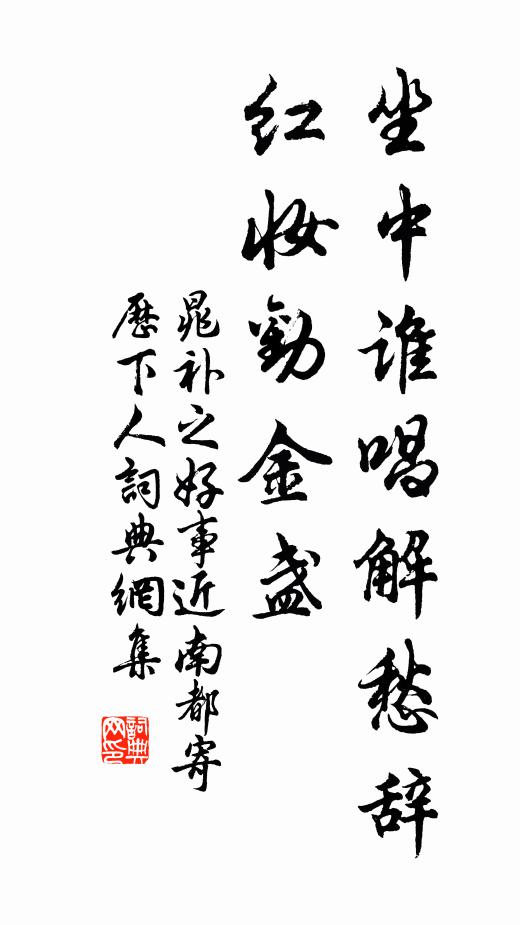 坐中谁唱解愁辞
红妆劝金盏
晁补之好事近南都寄
歷下人詞典網集
詞典网印